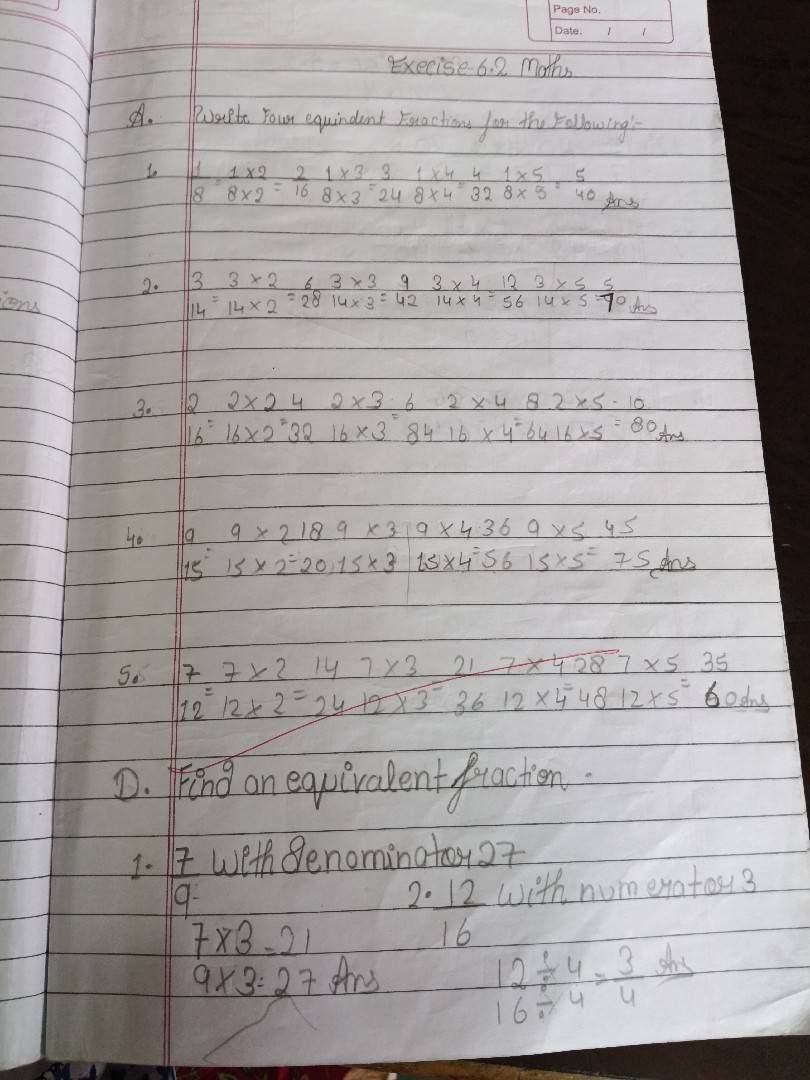 Page No.
Date. / /
Execise-6.2 Maths
A. Write Four equindent Fractions for the Following:-
1. 1/8 = 1×2/8×2 = 2/16 1×3/8×3 = 3/24 1×4/8×4 = 4/32 1×5/8×5 = 5/40 Ans
2. 3/14 = 3×2/14×2 = 6/28 3×3/14×3 = 9/42 3×4/14×4 = 12/56 3×5/14×5 = 5/70 Ans
ions
3. 2/16 = 2×2/16×2 = 4/32 2×3/16×3 = 6/84 2×4/16×4 = 8/64 2×5/16×5 = 10/80 Ans
4. 9/15 = 9×2/15×2 = 18/20 9×3/15×3 9×4/15×4 = 36/56 9×5/15×5 = 45/75 Ans
5. 7/12 = 7×2/12×2 = 14/24 7×3/12×3 = 21/36 7×4/12×4 = 28/48 7×5/12×5 = 35/60 Ans
D. Find an equivalent fraction.
1. 7/9 with denominator 27
2. 12/16 with numerator 3
7×3 = 21
9×3 = 27 Ans
12÷4/16÷4 = 3/4 Ans